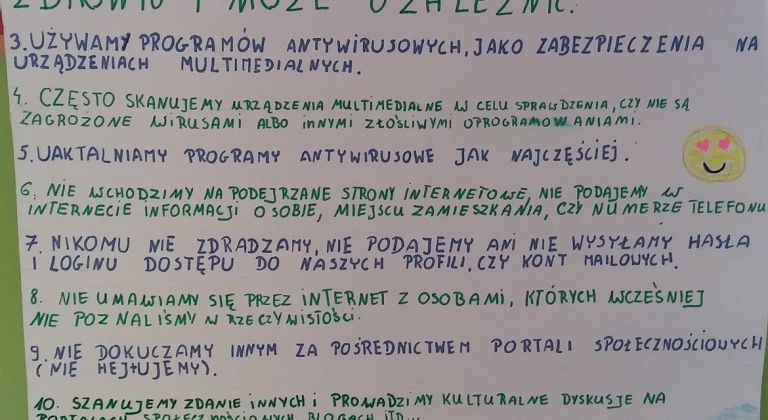 ZDROWIU I MOŻE UZALEŻNIĆ.
3. UŻYWAMY PROGRAMÓW ANTYWIRUSOWYCH, JAKO ZABEZPIECZENIA NA
URZĄDZENIACH MULTIMEDIALNYCH.
4. CZĘSTO SKANUJEMY URZĄDZENIA MULTIMEDIALNE W CELU SPRAWDZENIA, CZY NIE SĄ
ZAGROŻONE WIRUSAMI ALBO INNYMI ZŁOŚLIWYMI OPROGRAMOWANIAMI.
5. UAKTALNIAMY PROGRAMY ANTYWIRUSOWE JAK NAJCZĘŚCIEJ.
6. NIE WCHODZIMY NA PODEJRZANE STRONY INTERNETOWE, NIE PODAJEMY W
INTERNECIE INFORMACJI O SOBIE, MIEJSCU ZAMIESZKANIA, CZY NUMERZE TELEFONU
7. NIKOMU NIE ZDRADZAMY, NIE PODAJEMY ANI NIE WYSYŁAMY HASŁA
I LOGINU DOSTĘPU DO NASZYCH PROFILI, CZY KONT MAILOWYCH.
8. NIE UMAWIAMY SIĘ PRZEZ INTERNET Z OSOBAMI, KTÓRYCH WCZEŚNIEJ
NIE POZNALIŚMY W RZECZYWISTOŚCI.
9. NIE DOKUCZAMY INNYM ZA POŚREDNICTWEM PORTALI SPOŁECZNOŚCIOWYCH
(NIE HEJTUJEMY).
10. SZANUJEMY ZDANIE INNYCH I PROWADZIMY KULTURALNE DYSKUSJE NA
PORTALACH SPOŁECZNOŚCIOWYCH, BLOGACH ITD...